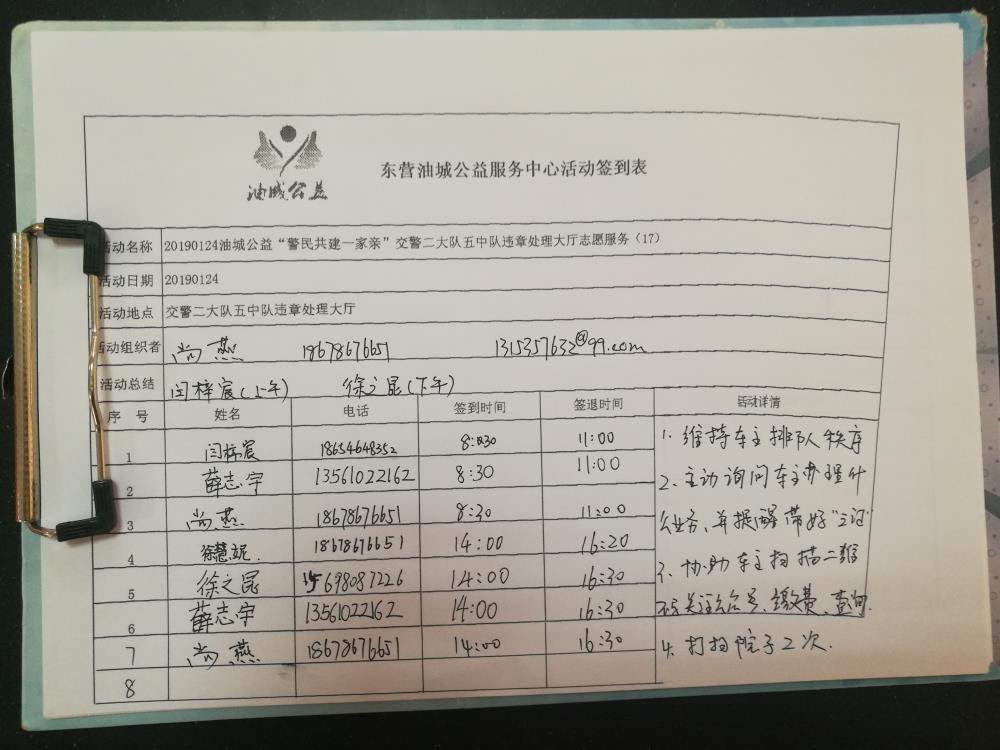 油城公益
东营油城公益服务中心活动签到表
活动名称 20190124油城公益“警民共建一家亲”交警二大队五中队违章处理大厅志愿服务（17）
活动日期 20190124
活动地点 交警二大队五中队违章处理大厅
活动组织者 尚燕 18678676651 1315357632@99.com
活动总结 闫梓宸(上午) 徐之昆(下午)
序号 姓名 电话 签到时间 签退时间 活动详情
1 闫梓宸 18654648352 8:30 11:00
2 薛志宇 13561022162 8:30 11:00
3 尚燕 18678676651 8:30 11:00
4 徐慧妮. 18678676651 14:00 16:20
5 徐之昆 15698087226 14:00 16:30
6 薛志宇 13561022162 14:00 16:30
7 尚燕 18678676651 14:00 16:30
8
1. 维持车主排队秩序
2、主动询问车主办理什
么业务、并提醒带好“三证”
3、协助车主扫描二维
码关注公众号、缴费、查询.
4. 打扫院子2次.